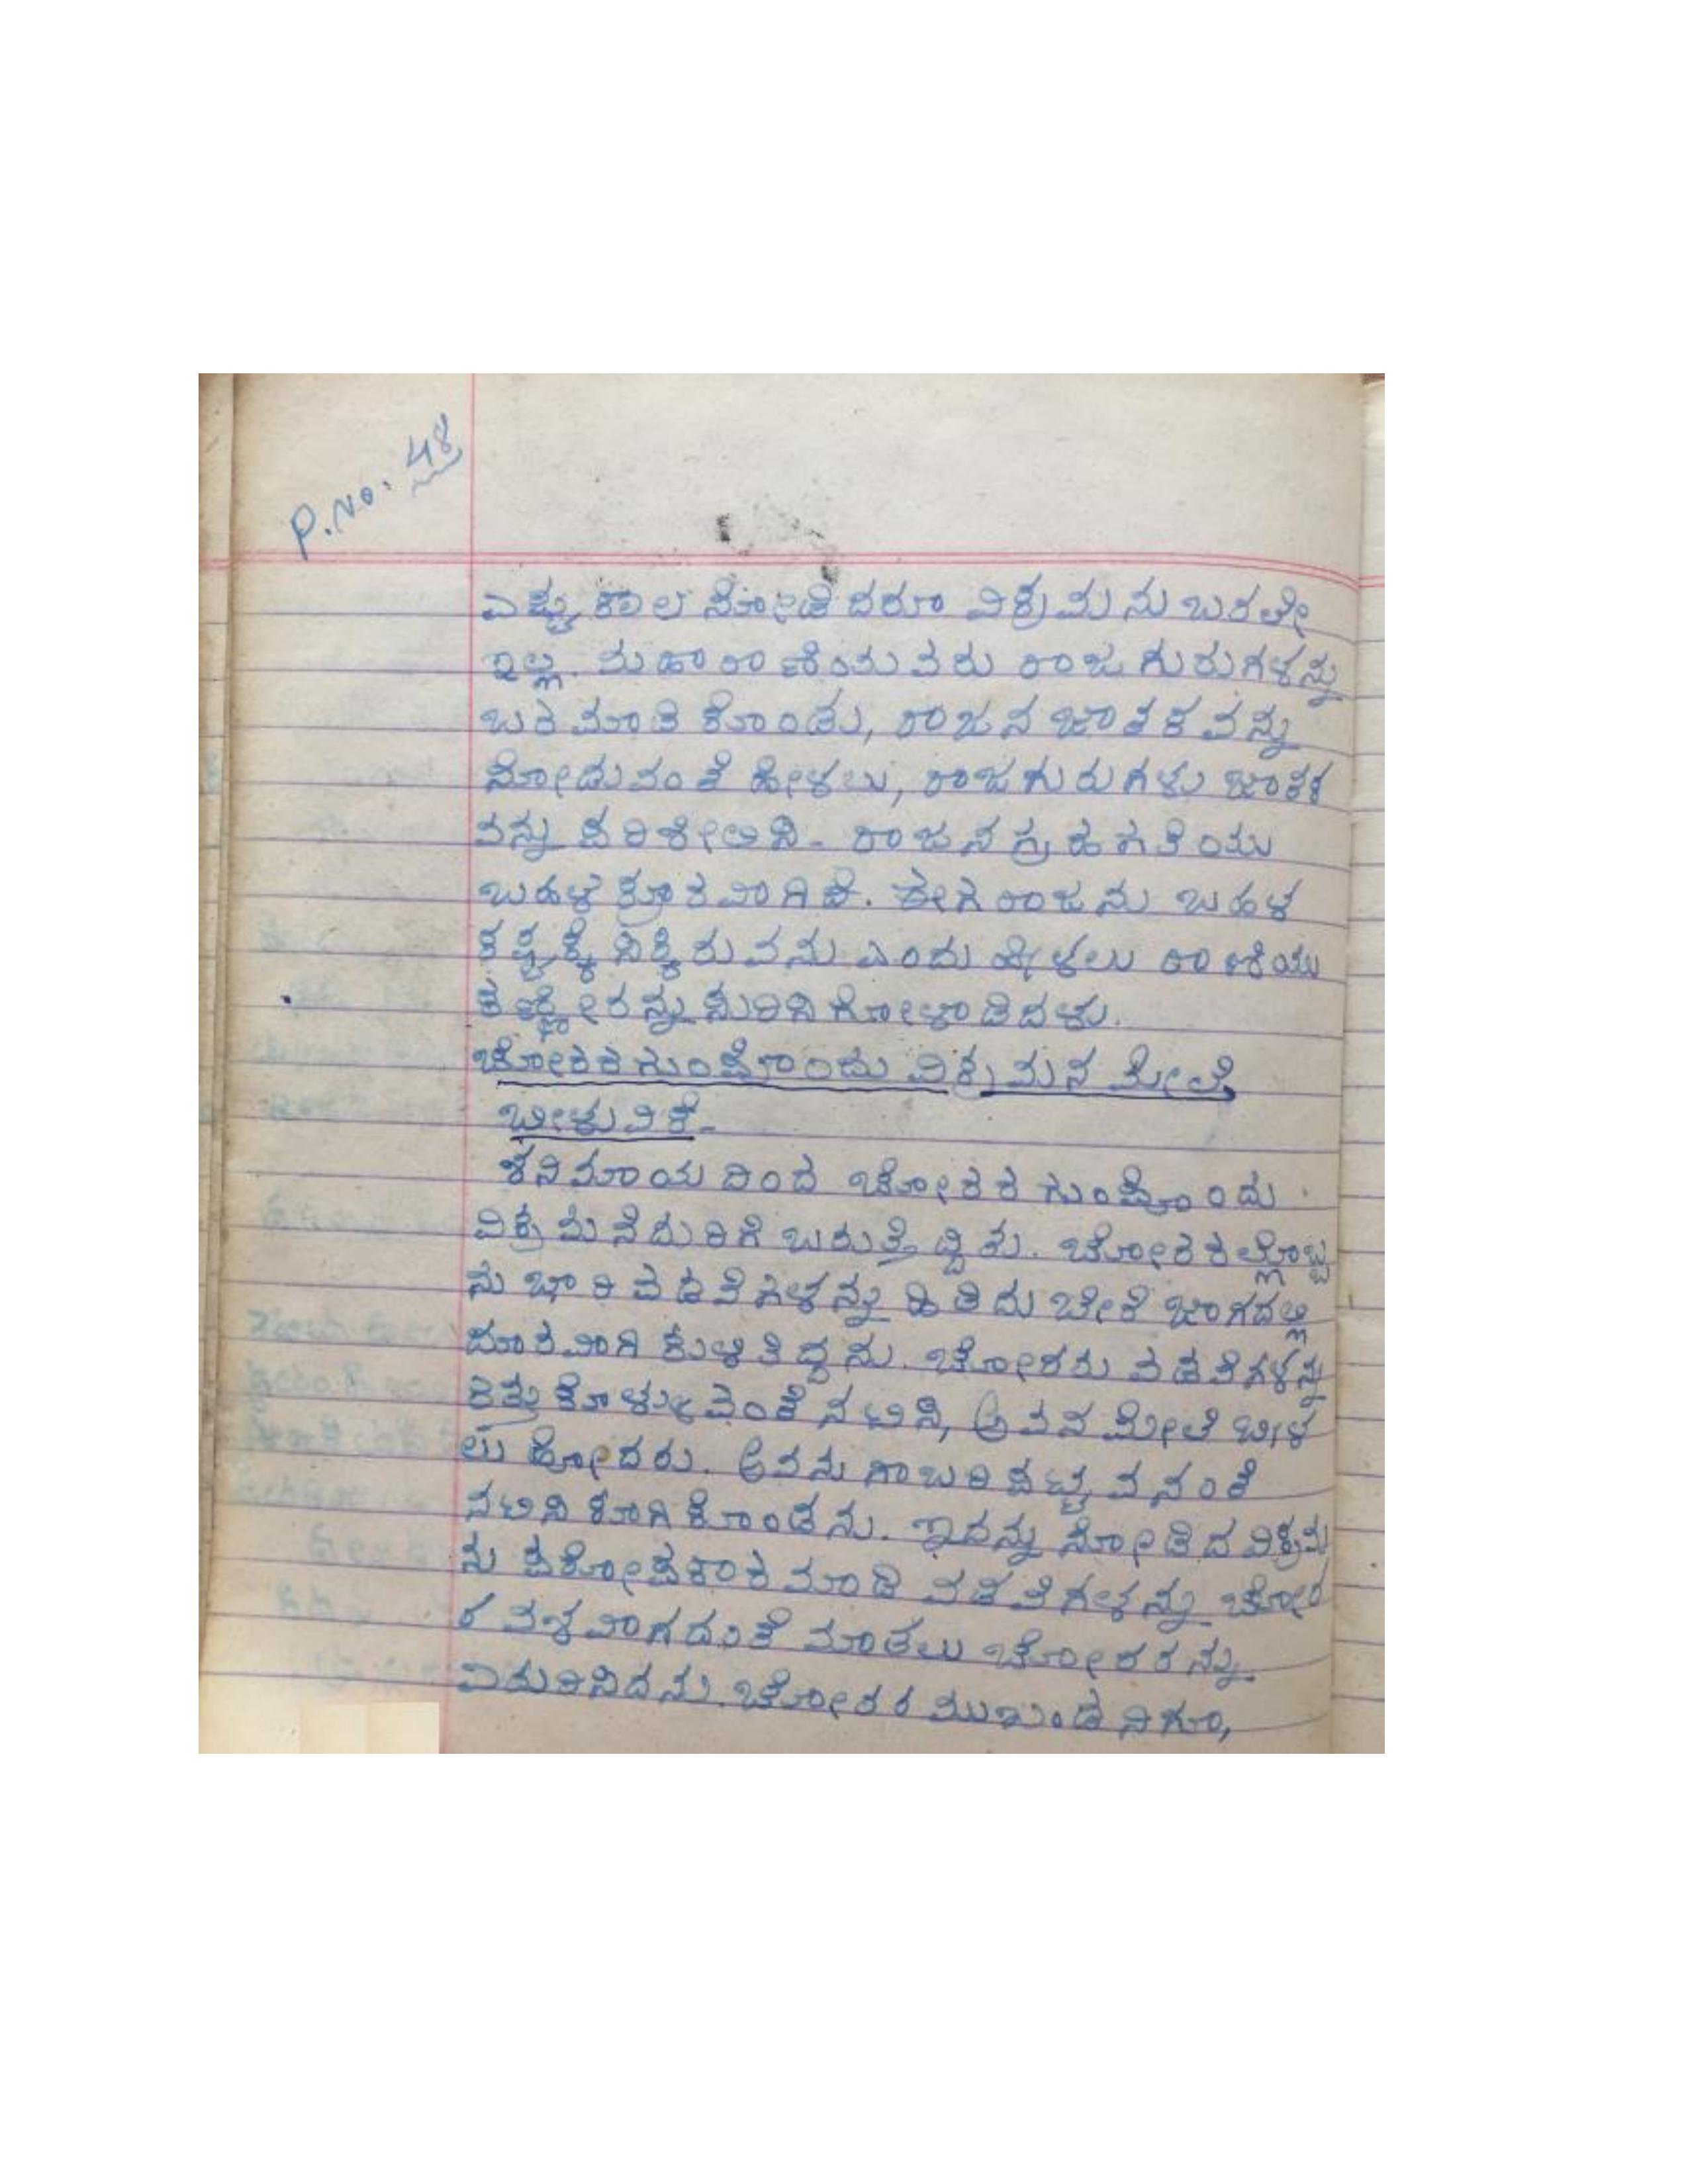 P.No: 48
ಎಷ್ಟು ಕಾಲ ನೋಡಿದರೂ ವಿಕ್ರಮನು ಬರಲೇ
ಇಲ್ಲ. ಮಹಾರಾಣಿಯವರು ರಾಜಗುರುಗಳನ್ನು
ಬರಮಾಡಿಕೊಂಡು, ರಾಜನ ಜಾತಕವನ್ನು
ನೋಡುವಂತೆ ಹೇಳಲು, ರಾಜಗುರುಗಳು ಜಾತಕ
ವನ್ನು ಪರಿಶೀಲಿಸಿ- ರಾಜನ ಗ್ರಹಗತಿಯು
ಬಹಳ ಕ್ರೂರವಾಗಿದೆ. ಈಗ ರಾಜನು ಬಹಳ
ಕಷ್ಟಕ್ಕೆ ಸಿಕ್ಕಿರುವನು ಎಂದು ಹೇಳಲು ರಾಣಿಯು
ಕಣ್ಣೀರನ್ನು ಸುರಿಸಿ ಗೋಳಾಡಿದಳು.
ಚೋರರ ಗುಂಪೊಂದು ವಿಕ್ರಮನ ಮೇಲೆ
ಬೀಳುವಿಕೆ-
ಶನಿಮಾಯದಿಂದ ಚೋರರ ಗುಂಪೊಂದು
ವಿಕ್ರಮನೆದುರಿಗೆ ಬರುತ್ತಿದ್ದಿತು. ಚೋರರಲ್ಲೊಬ್ಬ
ನು ಭಾರಿ ವಡವೆಗಳನ್ನು ಹಿಡಿದು ಬೇರೆ ಜಾಗದಲ್ಲಿ
ದೂರವಾಗಿ ಕುಳಿತಿದ್ದನು. ಚೋರರು ವಡವೆಗಳನ್ನು
ಕಿತ್ತುಕೊಳ್ಳುವಂತೆ ನಟಿಸಿ, ಅವನ ಮೇಲೆ ಬೀಳ
ಲು ಹೋದರು. ಅವನು ಗಾಬರಿಪಟ್ಟವನಂತೆ
ನಟಿಸಿ ಕೂಗಿಕೊಂಡನು. ಇದನ್ನು ನೋಡಿದ ವಿಕ್ರಮ
ನು ಪರೋಪಕಾರ ಮಾಡಿ ವಡವೆಗಳನ್ನು ಚೋರ
ರ ವಶವಾಗದಂತೆ ಮಾಡಲು ಚೋರರನ್ನು
ಎದುರಿಸಿದನು. ಚೋರರ ಮುಖಂಡನಿಗೂ,